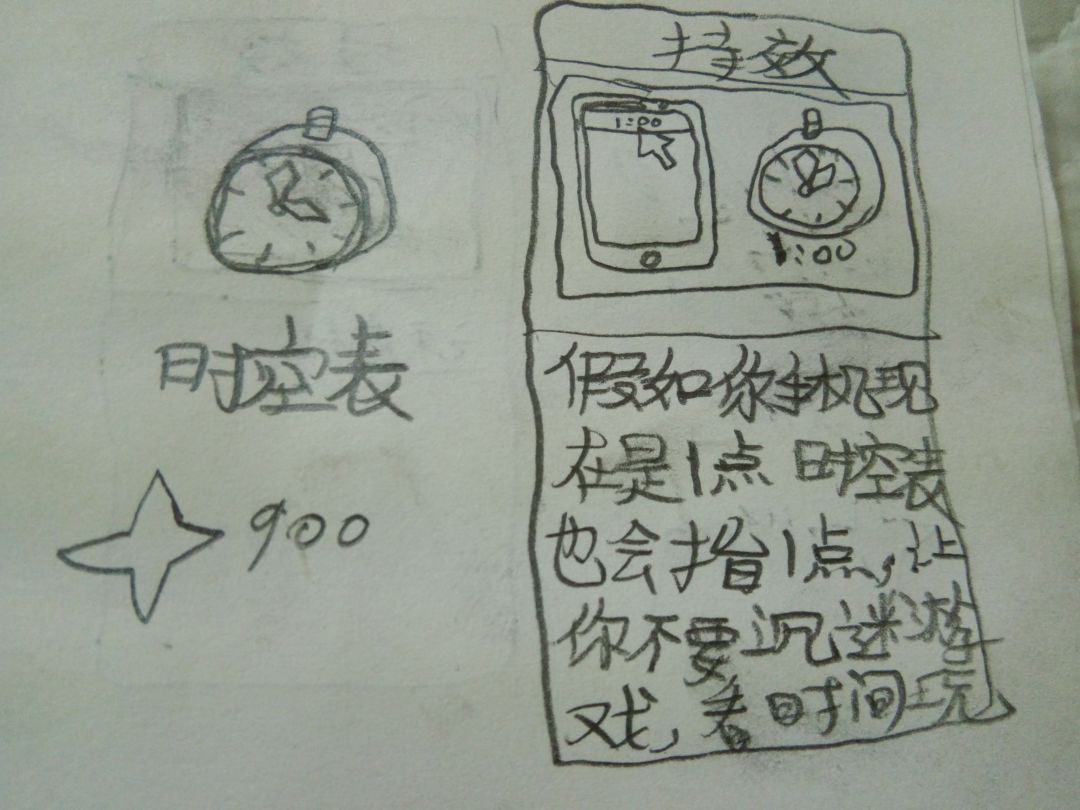 时控表
900
特效
1:00
1:00
假如你手机现
在是1点时控表
也会指1点,让
你不要沉迷游
戏,看时间玩